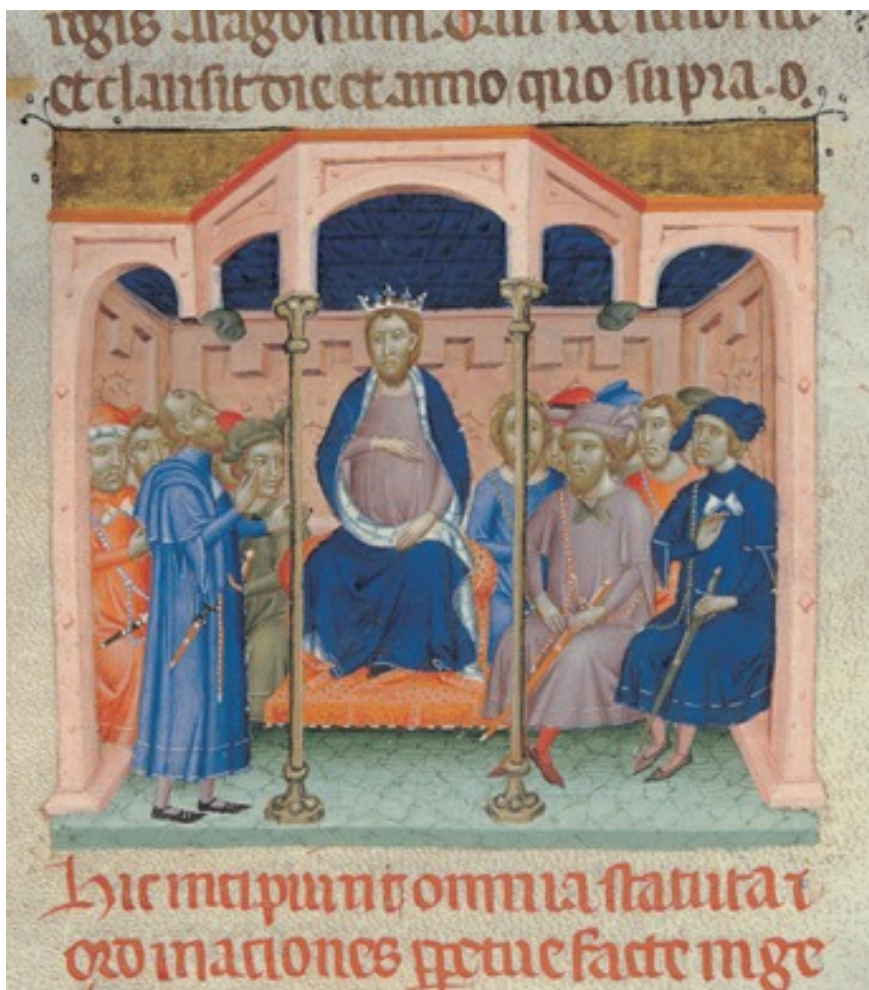 regis Aragonum. Qui
et clausit die et anno quo supra. O.
Hic incipiunt omnia statuta ⁊
ordinaciones ꝑpetue facte in ge